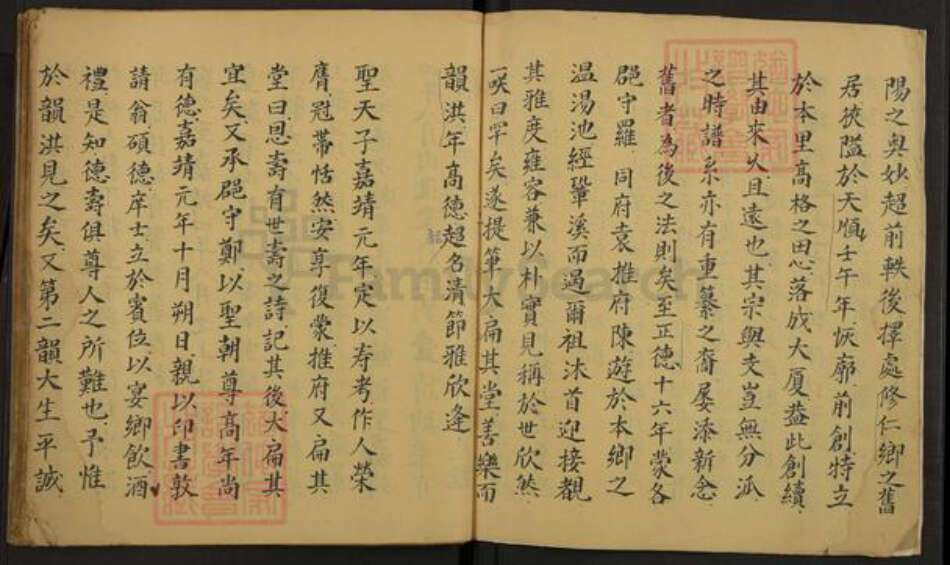 陽之奥妙超前軼後擇處修仁鄉之舊
居狹隘於天順壬午年恢廓前創特立
於本里高格之田心落成大厦葢此創續
其由來久且遠也其宗與支豈無分派
之時譜系亦有重纂之裔屡添新念
舊者為後之法則矣至正德十六年蒙各
郡守羅 同府袁推府陳遊於本鄉之
温湯池經鞏溪而過爾祖沐首迎接覩
其雅度雍容兼以朴實見稱於世欣然
一咲曰罕矣遂提筆大扁其堂善樂而
韻洪年高德超名清節雅欣逢
聖天子嘉靖元年定以寿考作人榮
膺冠帶恬然安享復蒙推府又扁其
堂曰恩壽有世壽之詩記其後大扁其
宜矣又承郡守鄭以聖朝尊高年尚
有德嘉靖元年十月朔日親以印書敦
請翁碩德庠士立於賓位以宴鄉飲酒
禮是知德壽俱尊人之所難也予惟
於韻洪見之矣又第二韻大生平誠
FamilySearch